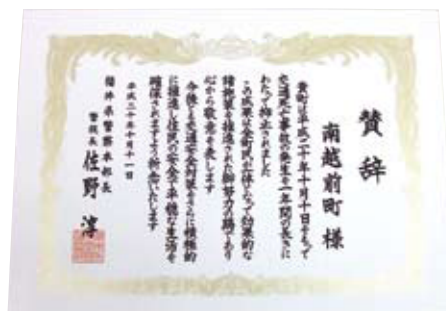 賛辞
南越前町様
貴町は平成二十年十月十日をもって
交通死亡事故の発生を一年間の長きに
わたって抑止されました
この成果は全町民が一体となって効果的な
諸施策を推進された御努力の賜であり
心から敬意を表します
今後とも交通安全対策をさらに積極的
に推進し住民の安全で平穏な生活を
確保されますよう祈念いたします
平成二十年十月十一日
福井県警察本部長
警視長 佐野淳